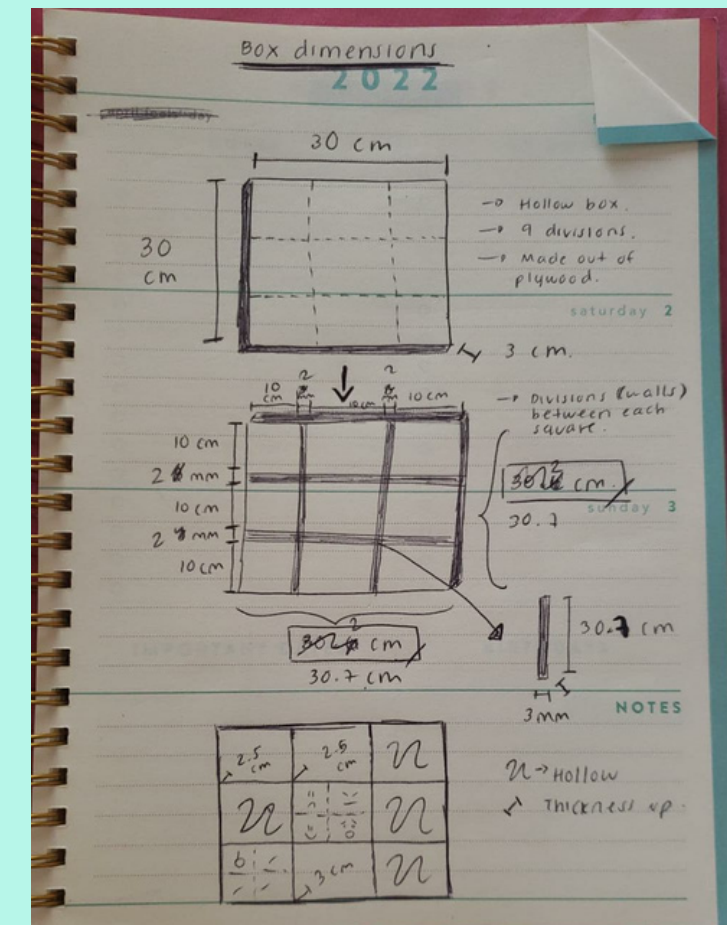 Box dimensions
2022
30 cm
30
cm
→ Hollow box.
→ 9 divisions.
→ Made out of
plywood.
saturday 2
3 cm.
10
cm
2
10 cm
2
10 cm
→ Divisions (walls)
between each
square.
10 cm
2 mm
10 cm
2 mm
10 cm
cm.
sunday 3
30.7
cm
30.7 cm
30.7 cm
3mm
NOTES
2.5
cm
2.5
cm
→ Hollow
Thickness up.
3 cm